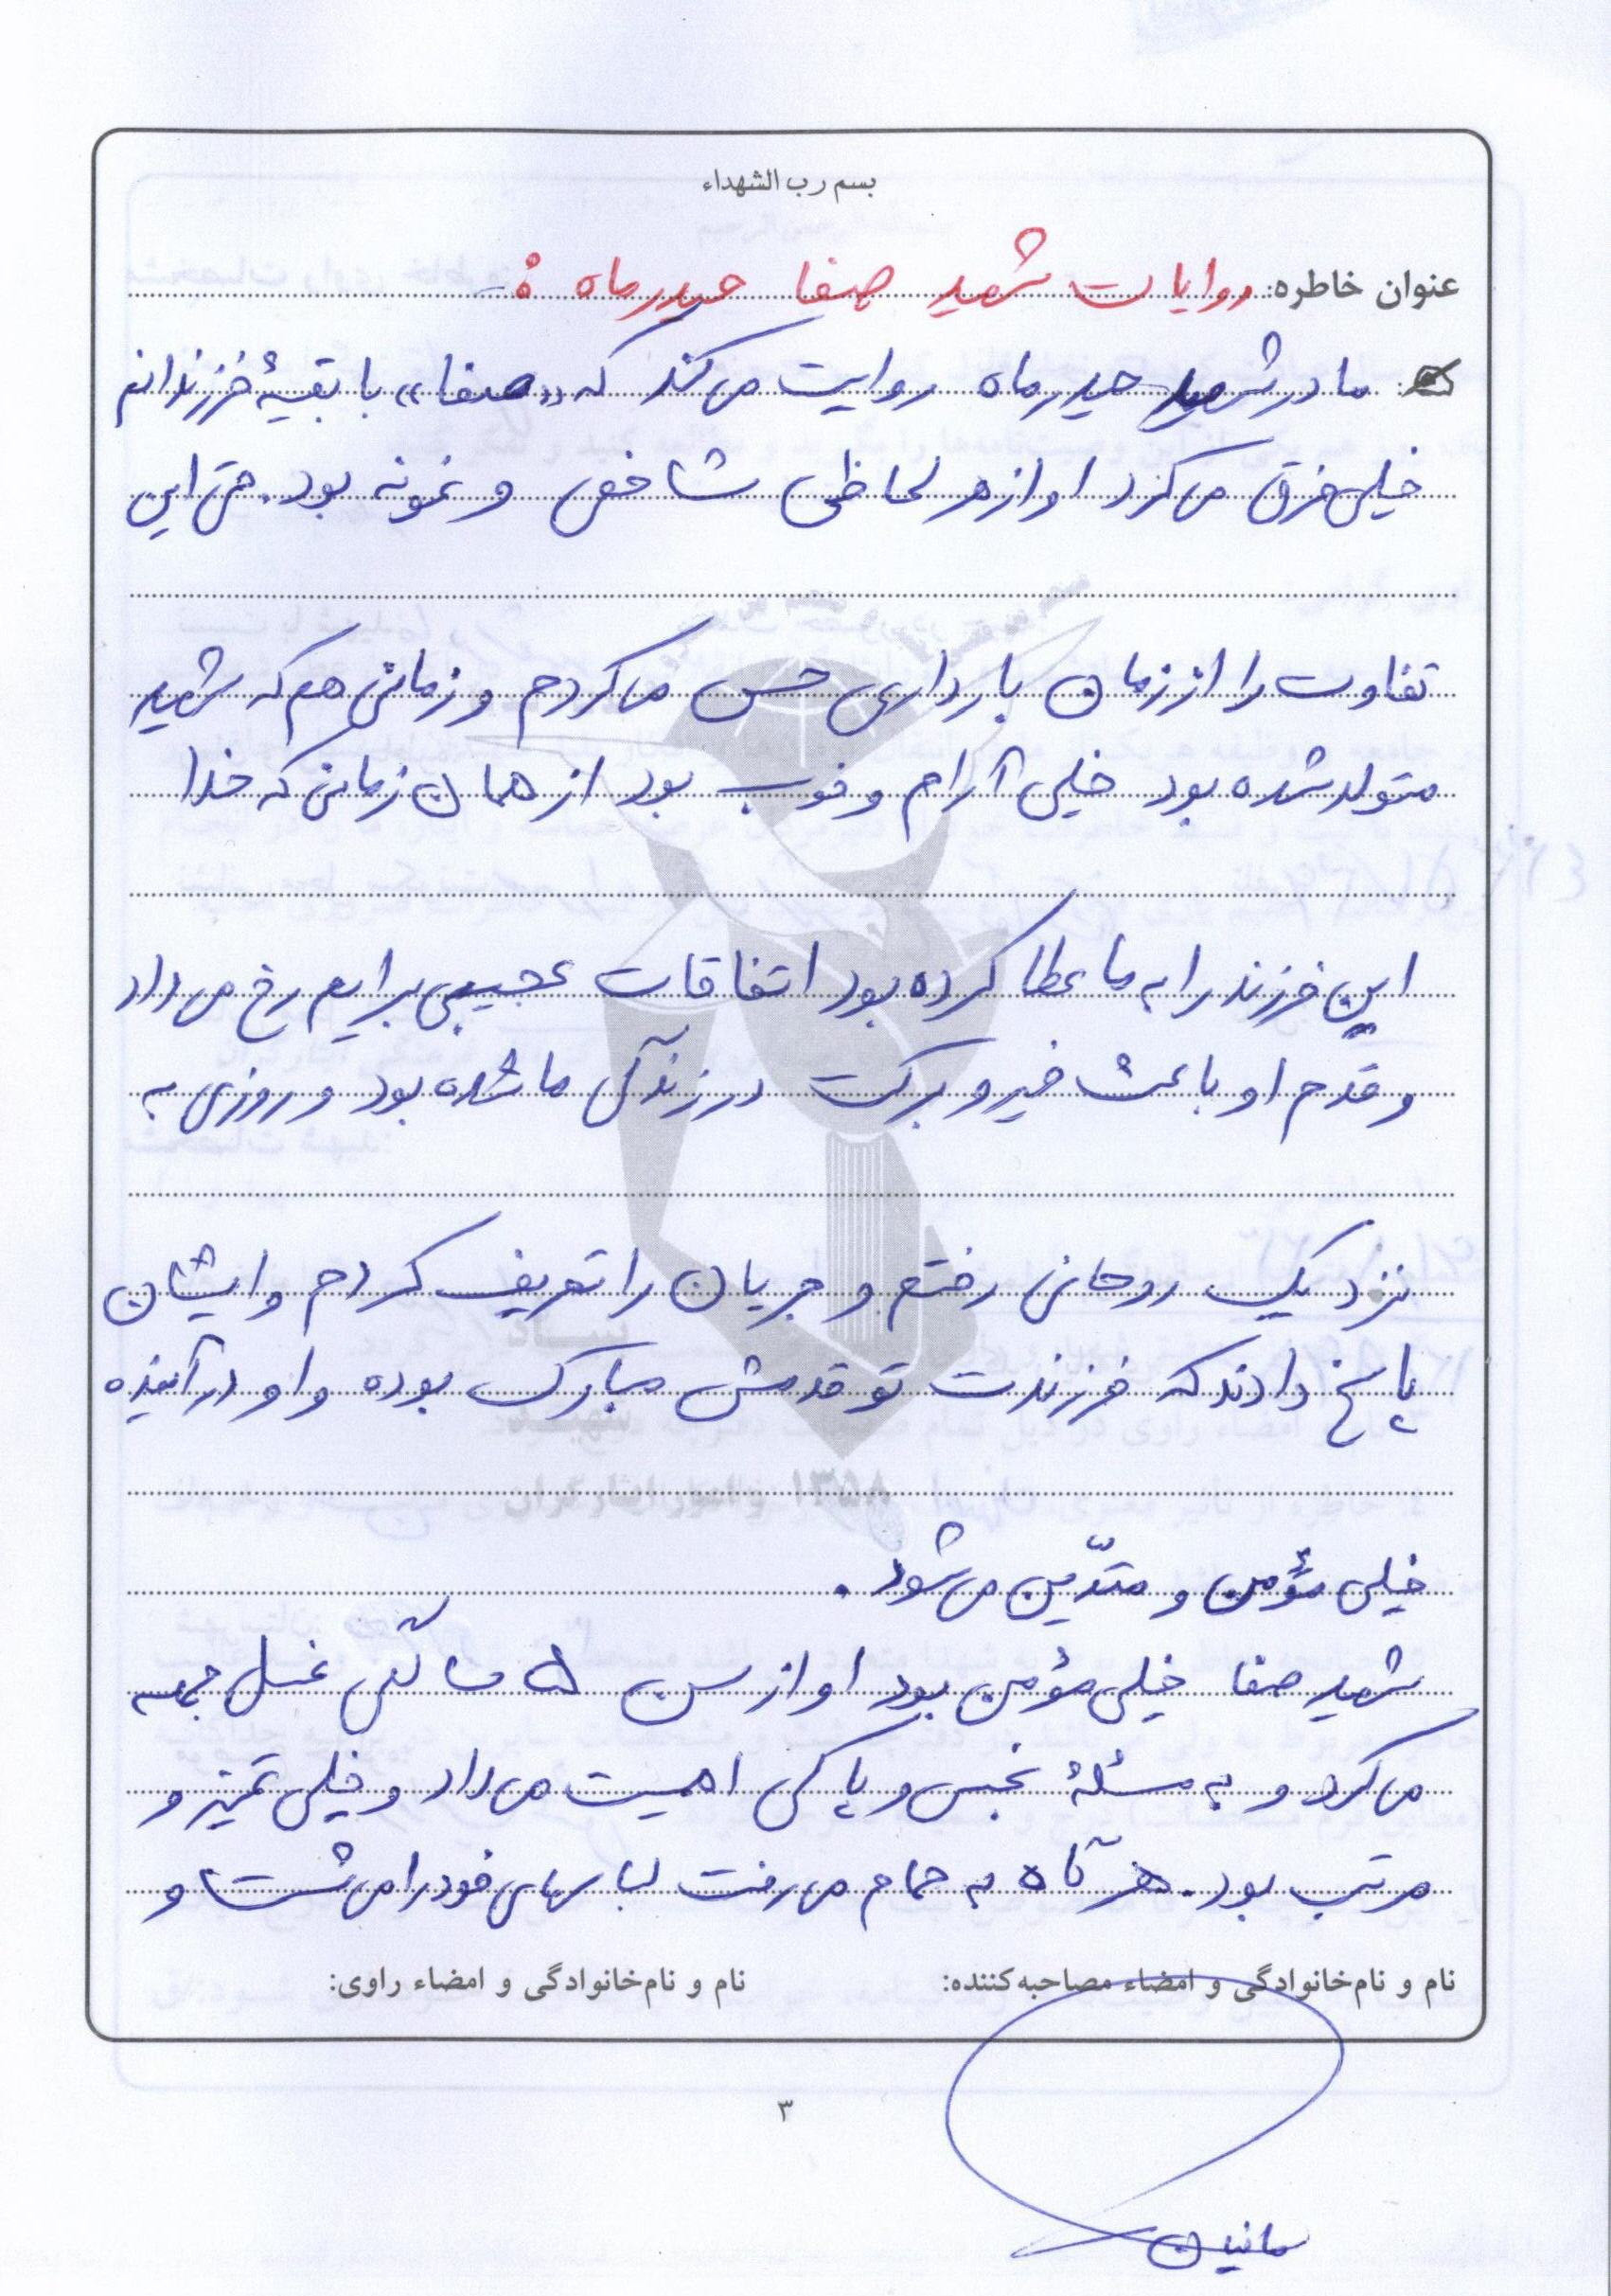 بسم رب الشهداء
عنوان خاطره: روایات شهید صفا حیدرماه :
مادر شهید حیدرماه روایت می‌کند که «صفا» با بقیهٔ فرزندانم
خیلی فرق می‌کرد او از هر لحاظی شاخص و نمونه بود. حتی این
تفاوت را از زمان بارداری حس می‌کردم و زمانی هم که شهید
متولد شده بود خیلی آرام و خوب بود از همان زمانی که خدا
این فرزند را به ما عطا کرده بود اتفاقات عجیبی برایم رخ می‌داد
و قدم او باعث خیر و برکت در زندگی ما شده بود و روزی به
نزد یک روحانی رفتم و جریان را تعریف کردم و ایشان
پاسخ دادند که فرزندت تو قدمش مبارک بوده و او در آینده
خیلی مؤمن و متدّین می‌شود.
شهید صفا خیلی مؤمن بود او از سن ۵ سالگی غسل جمعه
می‌کرد و به مسئلهٔ نجس و پاکی اهمیت می‌داد و خیلی تمیز و
مرتب بود. هرگاه به حمام می‌رفت لباسهای خود را می‌شست و
نام و نام‌خانوادگی و امضاء مصاحبه‌کننده: نام و نام‌خانوادگی و امضاء راوی:
۳